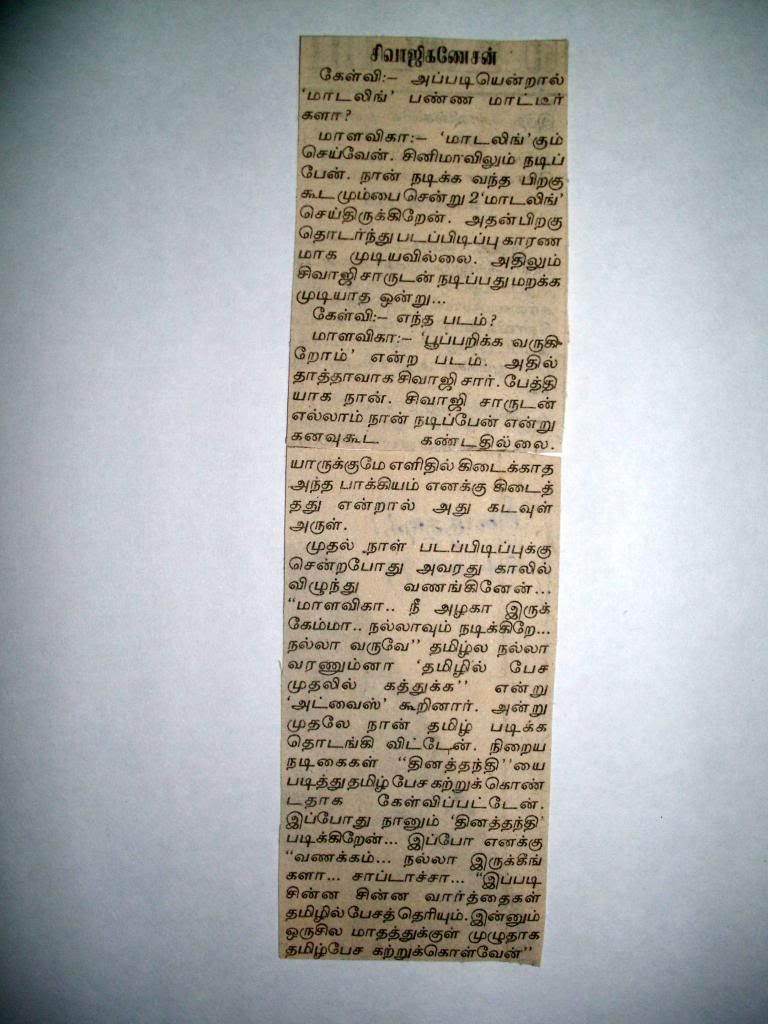 சிவாஜிகணேசன்
கேள்வி:– அப்படியென்றால்
‘மாடலிங்’ பண்ண மாட்டீர்
களா?
மாளவிகா:– ‘மாடலிங்’கும்
செய்வேன். சினிமாவிலும் நடிப்
பேன். நான் நடிக்க வந்த பிறகு
கூட மும்பை சென்று 2 ‘மாடலிங்’
செய்திருக்கிறேன். அதன்பிறகு
தொடர்ந்து படப்பிடிப்பு காரண
மாக முடியவில்லை. அதிலும்
சிவாஜி சாருடன் நடிப்பது மறக்க
முடியாத ஒன்று...
கேள்வி:– எந்த படம்?
மாளவிகா:– ‘பூப்பறிக்க வருகி
றோம்’ என்ற படம். அதில்
தாத்தாவாக சிவாஜி சார். பேத்தி
யாக நான். சிவாஜி சாருடன்
எல்லாம் நான் நடிப்பேன் என்று
கனவுகூட கண்டதில்லை.
யாருக்குமே எளிதில் கிடைக்காத
அந்த பாக்கியம் எனக்கு கிடைத்
தது என்றால் அது கடவுள்
அருள்.
முதல் நாள் படப்பிடிப்புக்கு
சென்றபோது அவரது காலில்
விழுந்து வணங்கினேன்...
“மாளவிகா.. நீ அழகா இருக்
கேம்மா.. நல்லாவும் நடிக்கிறே...
நல்லா வருவே’’ தமிழ்ல நல்லா
வரணும்னா ‘தமிழில் பேச
முதலில் கத்துக்க’’ என்று
‘அட்வைஸ்’ கூறினார். அன்று
முதலே நான் தமிழ் படிக்க
தொடங்கி விட்டேன். நிறைய
நடிகைகள் “தினத்தந்தி’’யை
படித்து தமிழ் பேச கற்றுக்கொண்
டதாக கேள்விப்பட்டேன்.
இப்போது நானும் ‘தினத்தந்தி’
படிக்கிறேன்... இப்போ எனக்கு
“வணக்கம்... நல்லா இருக்கீங்
களா... சாப்டாச்சா... “இப்படி
சின்ன சின்ன வார்த்தைகள்
தமிழில் பேசத் தெரியும். இன்னும்
ஒருசில மாதத்துக்குள் முழுதாக
தமிழ்பேச கற்றுக்கொள்வேன்’’